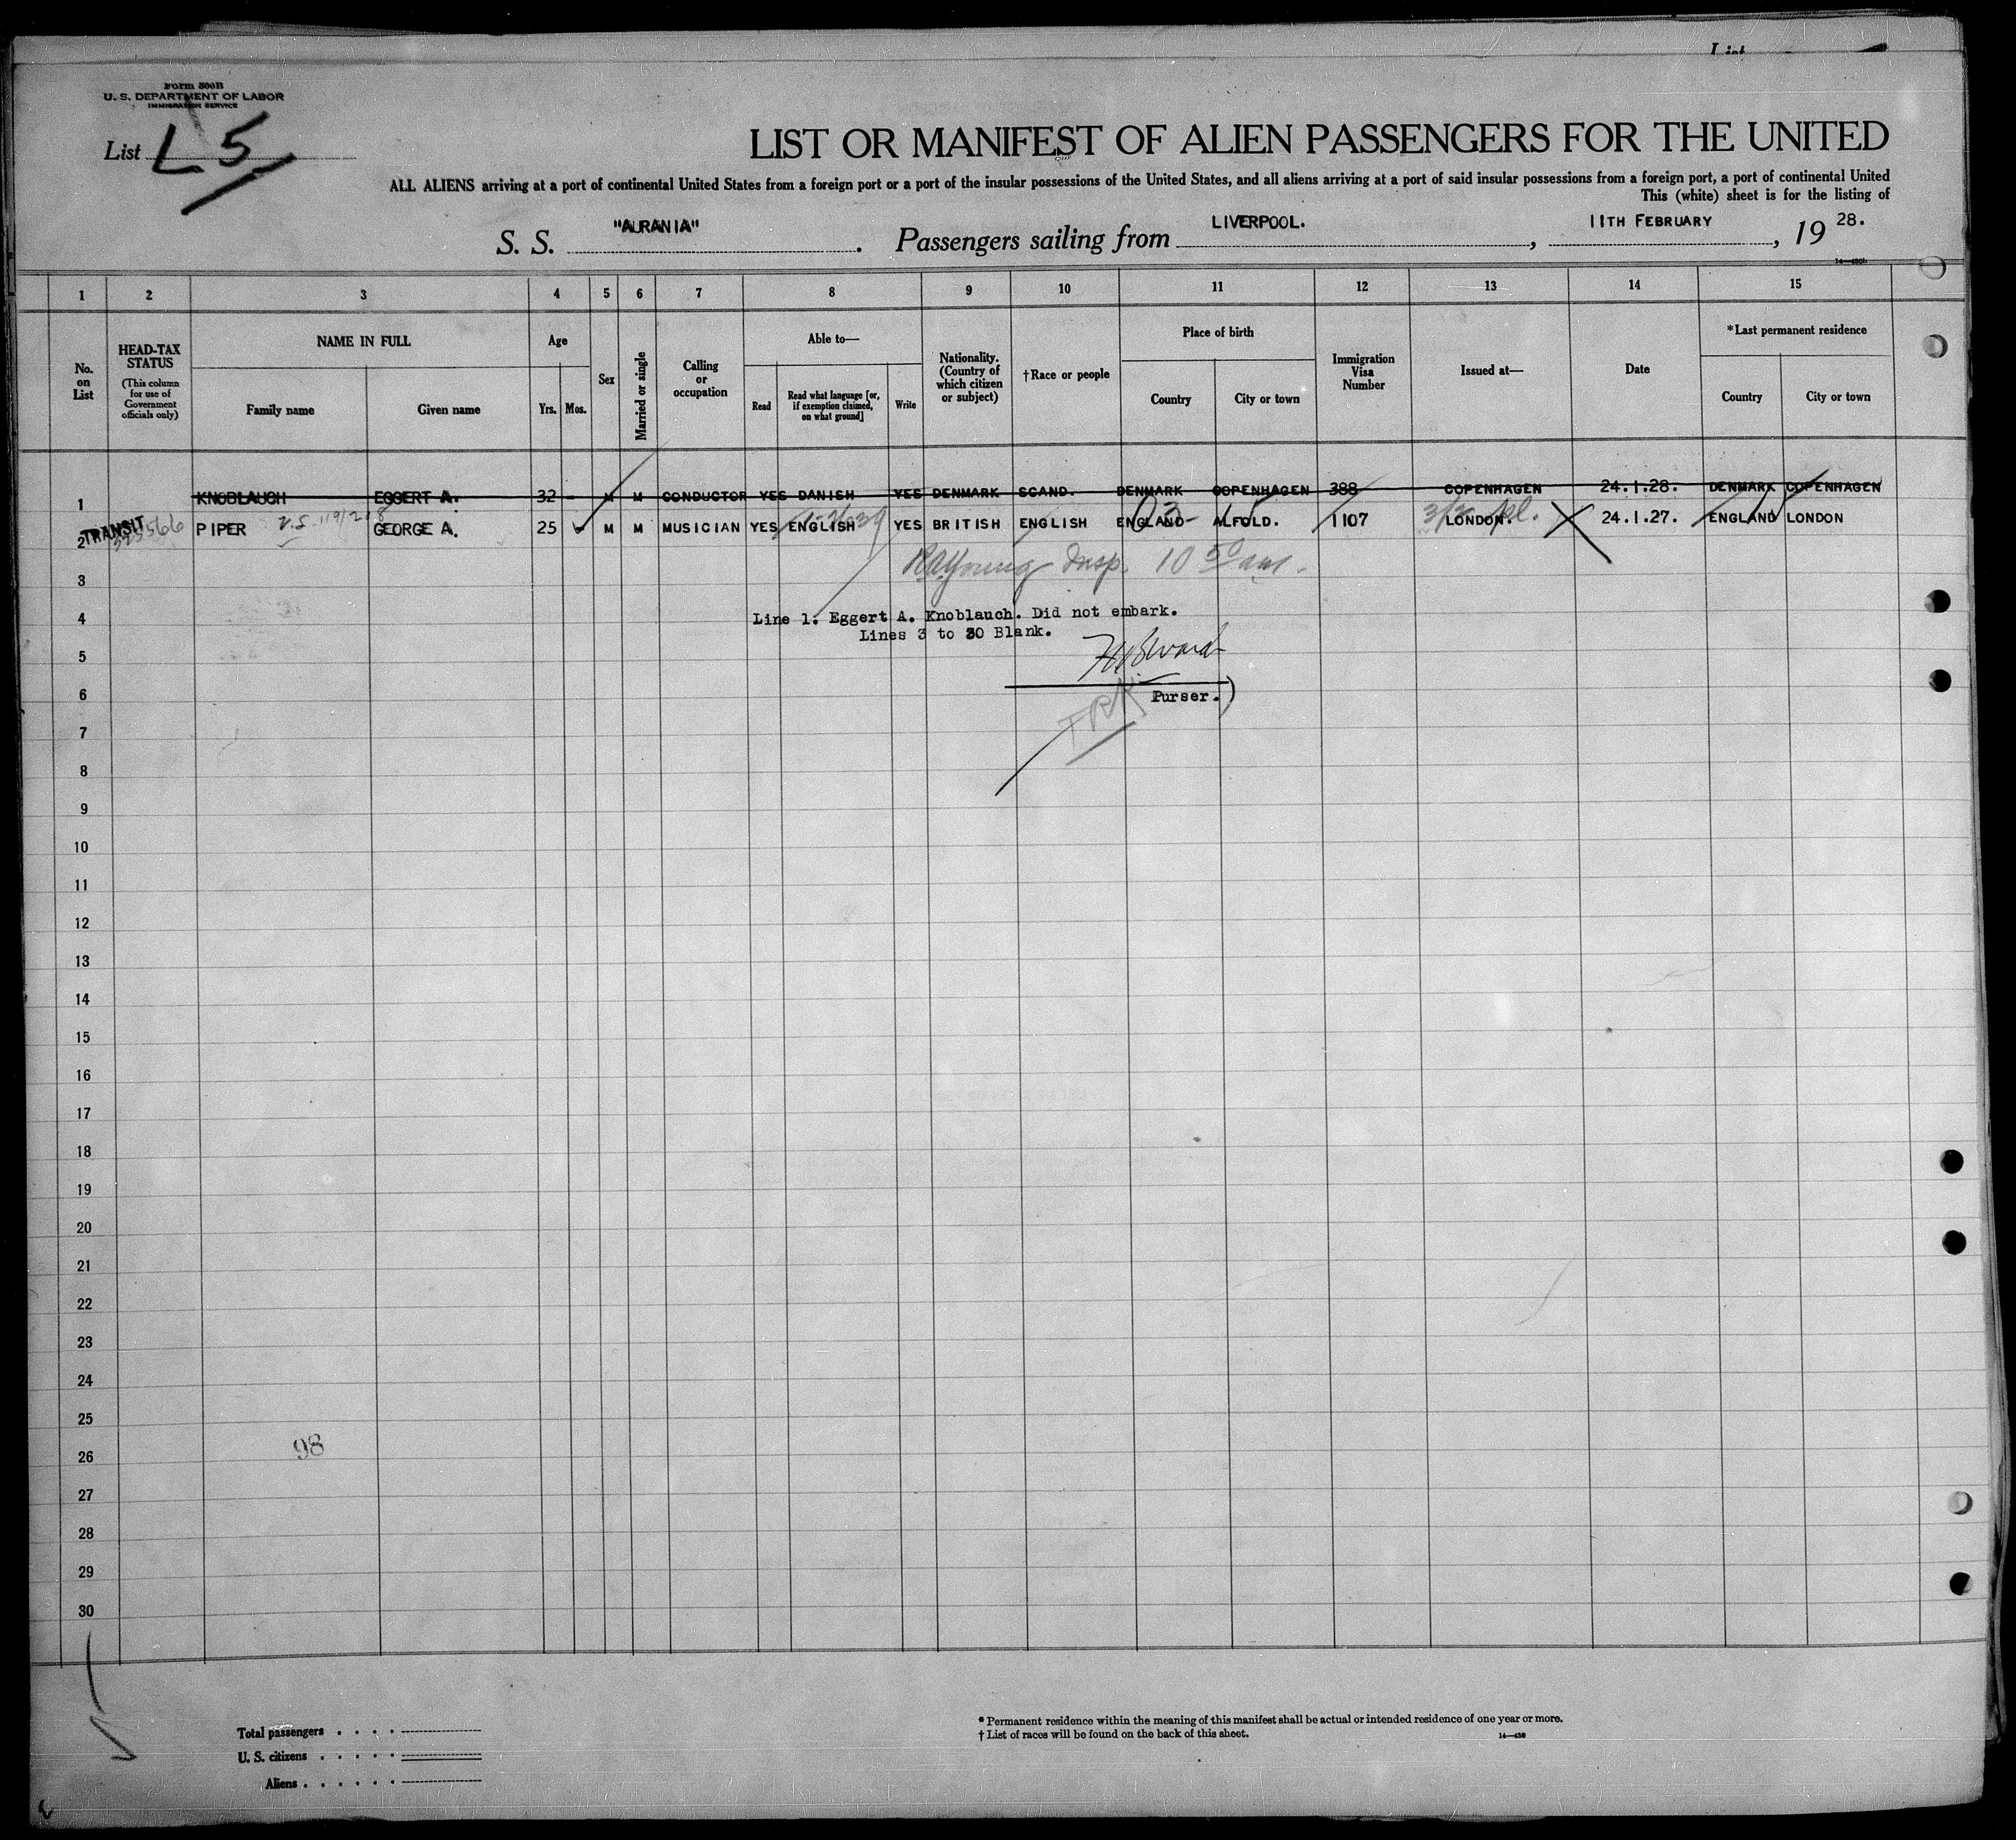 Form 500B
U. S. DEPARTMENT OF LABOR
IMMIGRATION SERVICE
List L 5
LIST OR MANIFEST OF ALIEN PASSENGERS FOR THE UNITED
ALL ALIENS arriving at a port of continental United States from a foreign port or a port of the insular possessions of the United States, and all aliens arriving at a port of said insular possessions from a foreign port, a port of continental United
This (white) sheet is for the listing of
S. S. "AURANIA". Passengers sailing from LIVERPOOL., 11TH FEBRUARY, 1928.
1 2 3 4 5 6 7 8 9 10 11 12 13 14 15
No. on List
HEAD-TAX STATUS
(This column for use of Government officials only)
NAME IN FULL
Family name Given name
Age
Yrs. Mos.
Sex
Married or single
Calling or occupation
Able to—
Read
Read what language [or, if exemption claimed, on what ground]
Write
Nationality. (Country of which citizen or subject)
†Race or people
Place of birth
Country City or town
Immigration Visa Number
Issued at—
Date
*Last permanent residence
Country City or town
1 KNOBLAUCH EGGERT A. 32 - M M CONDUCTOR YES DANISH YES DENMARK SCAND. DENMARK COPENHAGEN 388 COPENHAGEN 24.1.28. DENMARK COPENHAGEN
TRANSIT
2 PIPER GEORGE A. 25 M M MUSICIAN YES ENGLISH YES BRITISH ENGLISH ENGLAND ALFOLD. 1107 LONDON. 24.1.27. ENGLAND LONDON
3 Insp. 10 50 am.
4 Line 1. Eggert A. Knoblauch. Did not embark.
Lines 3 to 30 Blank.
5
6 Purser.
7
8
9
10
11
12
13
14
15
16
17
18
19
20
21
22
23
24
25
98
26
27
28
29
30
Total passengers . . . .
U. S. citizens . . . . .
Aliens . . . . . .
* Permanent residence within the meaning of this manifest shall be actual or intended residence of one year or more.
† List of races will be found on the back of this sheet.
14—430